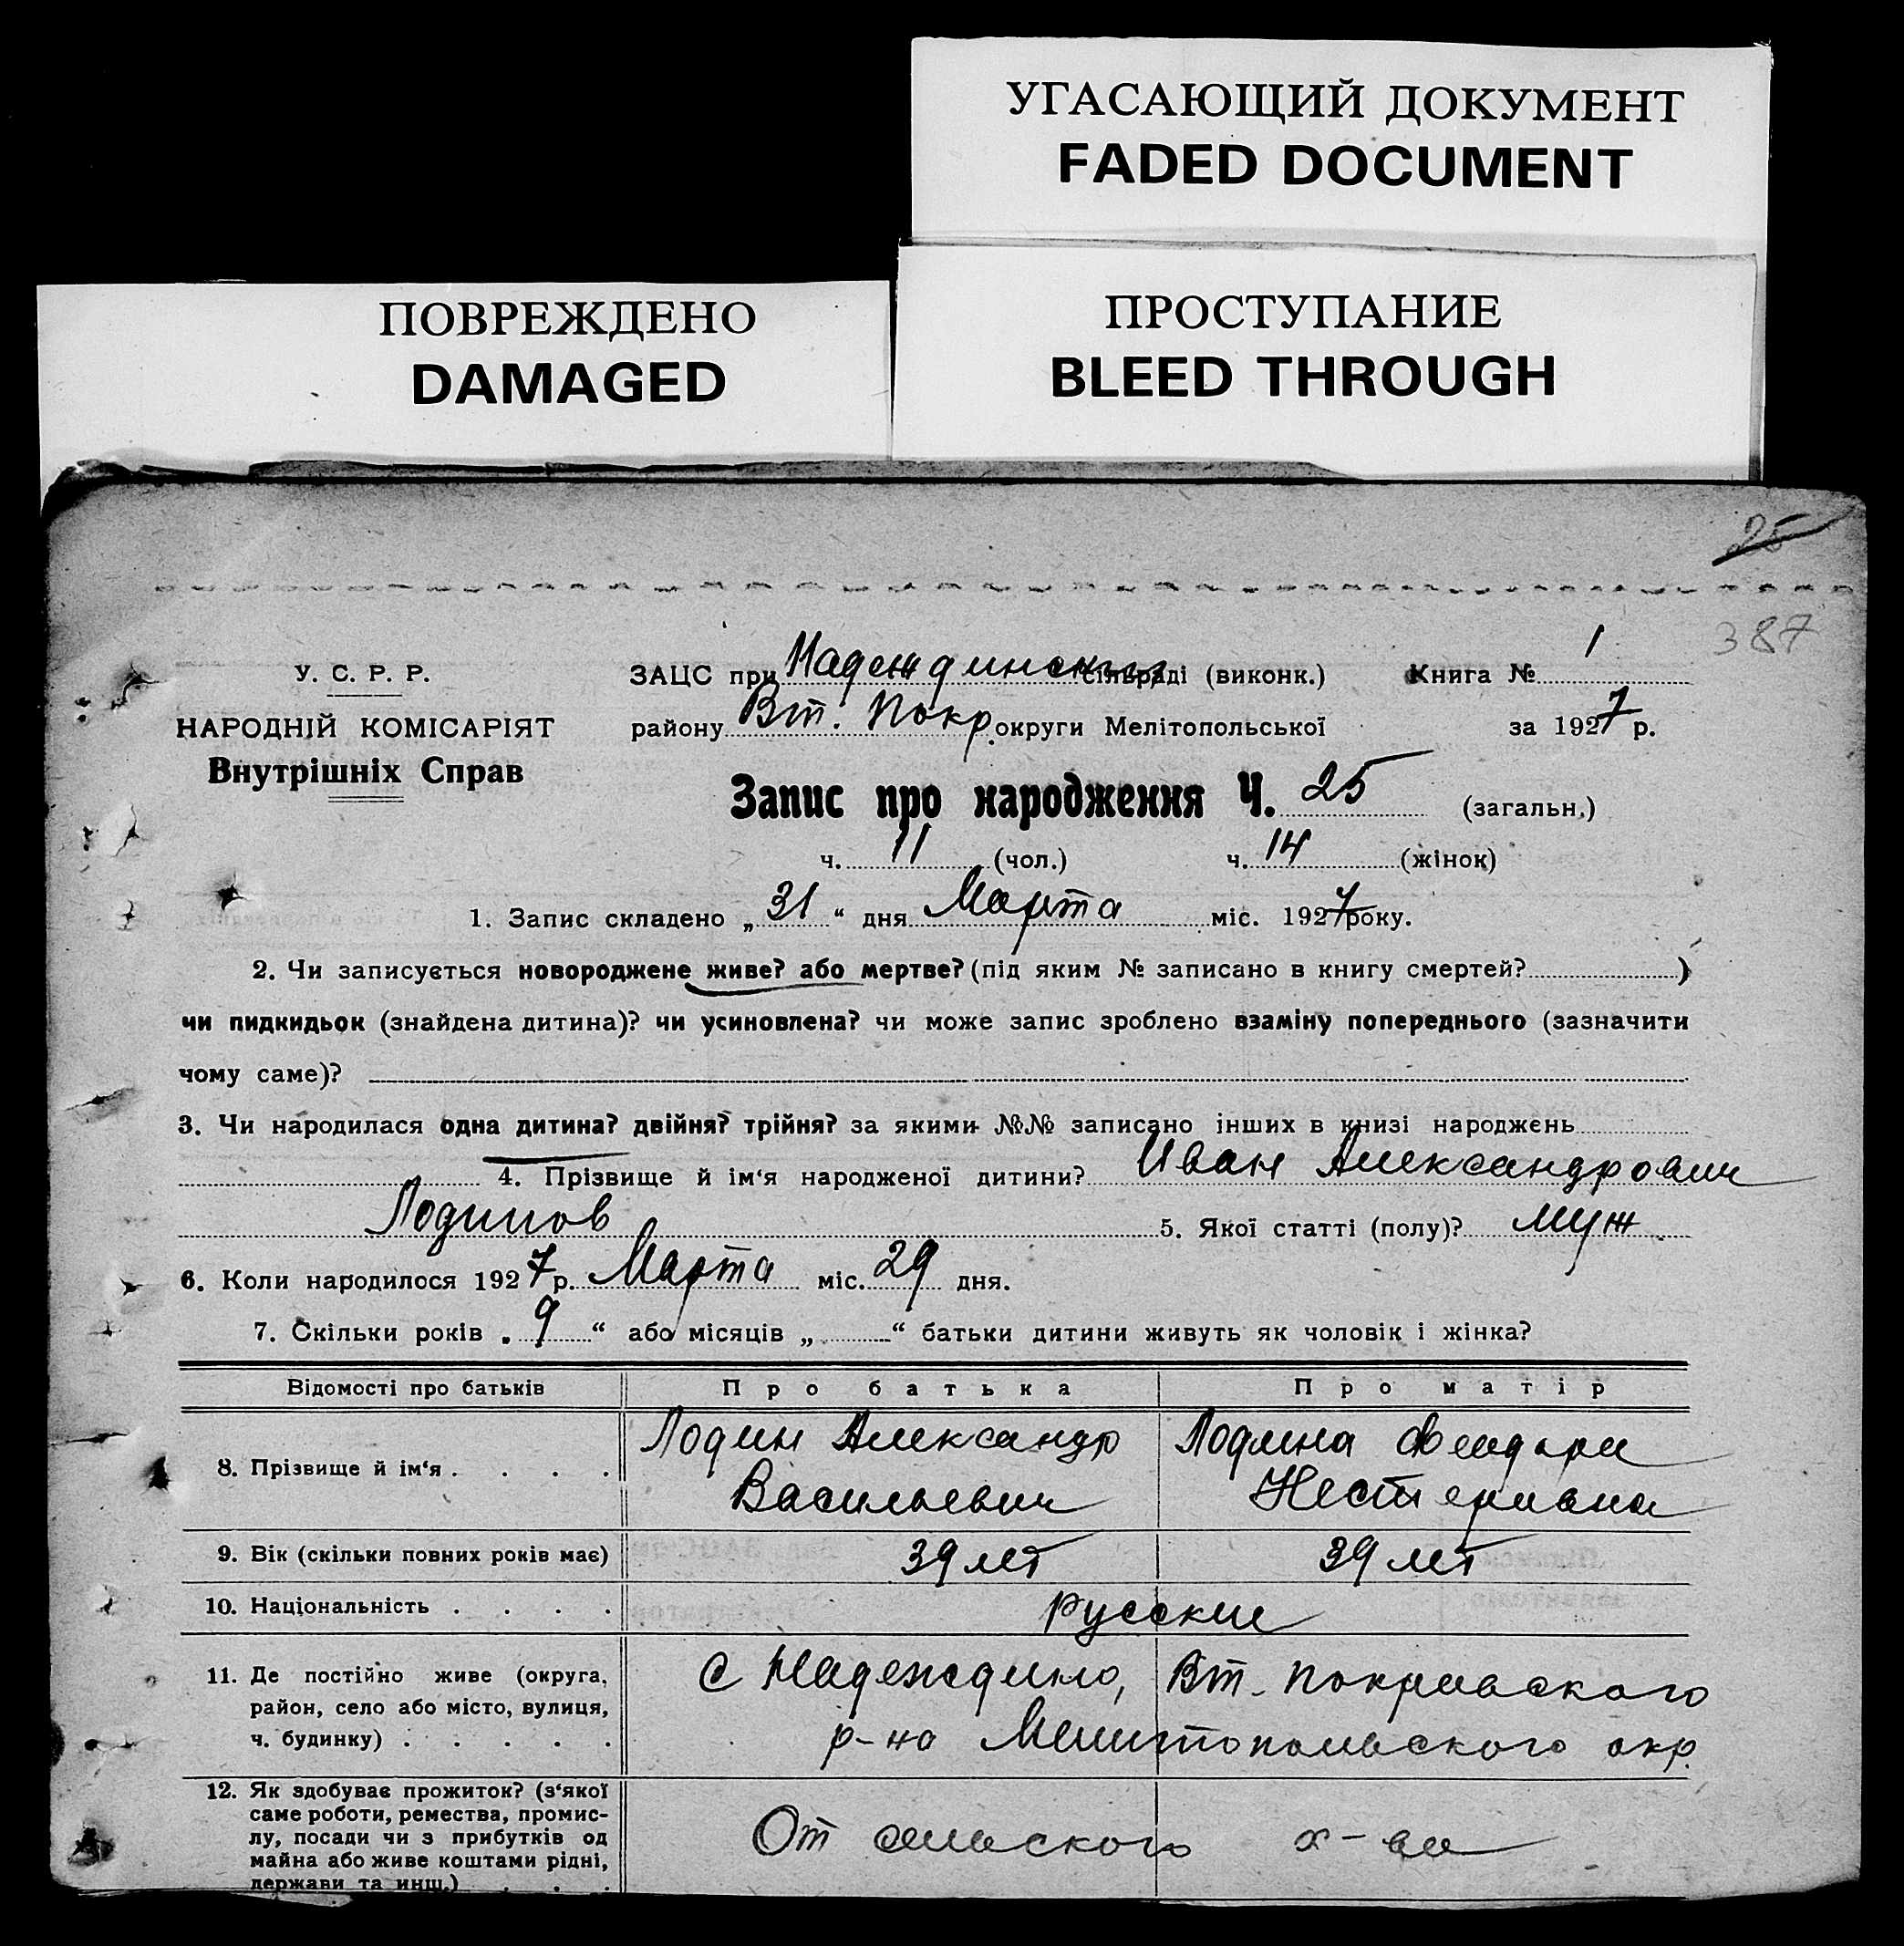 УГАСАЮЩИЙ ДОКУМЕНТ
FADED DOCUMENT
ПОВРЕЖДЕНО
DAMAGED
ПРОСТУПАНИЕ
BLEED THROUGH
25
387
У. С. Р. Р.
НАРОДНІЙ КОМІСАРІЯТ
Внутрішніх Справ
ЗАЦС при Надеждинский сільраді (виконк.) Книга № 1
району Вт. Покр округи Мелітопольської за 1927 р.
Запис про народження Ч. 25 (загальн.)
ч. 11 (чол.) ч. 14 (жінок)
1. Запис складено „ 31 “ дня Марта міс. 1927 року.
2. Чи записується новороджене живе? або мертве? (під яким № записано в книгу смертей? )
чи пидкидьок (знайдена дитина)? чи усиновлена? чи може запис зроблено взаміну попереднього (зазначити
чому саме)?
3. Чи народилася одна дитина? двійня? трійня? за якими №№ записано інших в книзі народжень
4. Прізвище й ім‘я народженої дитини? Иван Александрович
Лодинов 5. Якої статті (полу)? муж
6. Коли народилося 1927 р. Марта міс. 29 дня.
7. Скільки років „ 9 “ або місяців „ “ батьки дитини живуть як чоловік і жінка?
Відомості про батьків Про батька Про матір
8. Прізвище й ім‘я . . . . Лодин Александр Лодина
Васильевич Нестеривна
9. Вік (скільки повних років має) 39 лет 39 лет
10. Національність . . . . русские
11. Де постійно живе (округа, район, село або місто, вулиця, ч. будинку) . . . . . с Надеждино, Вт. Покривского
р-на Мелитопольского окр.
12. Як здобуває прожиток? (з‘якої саме роботи, ремества, промис-
лу, посади чи з прибутків од майна або живе коштами рідні, держави та инш.) . . . От сельского х-ва